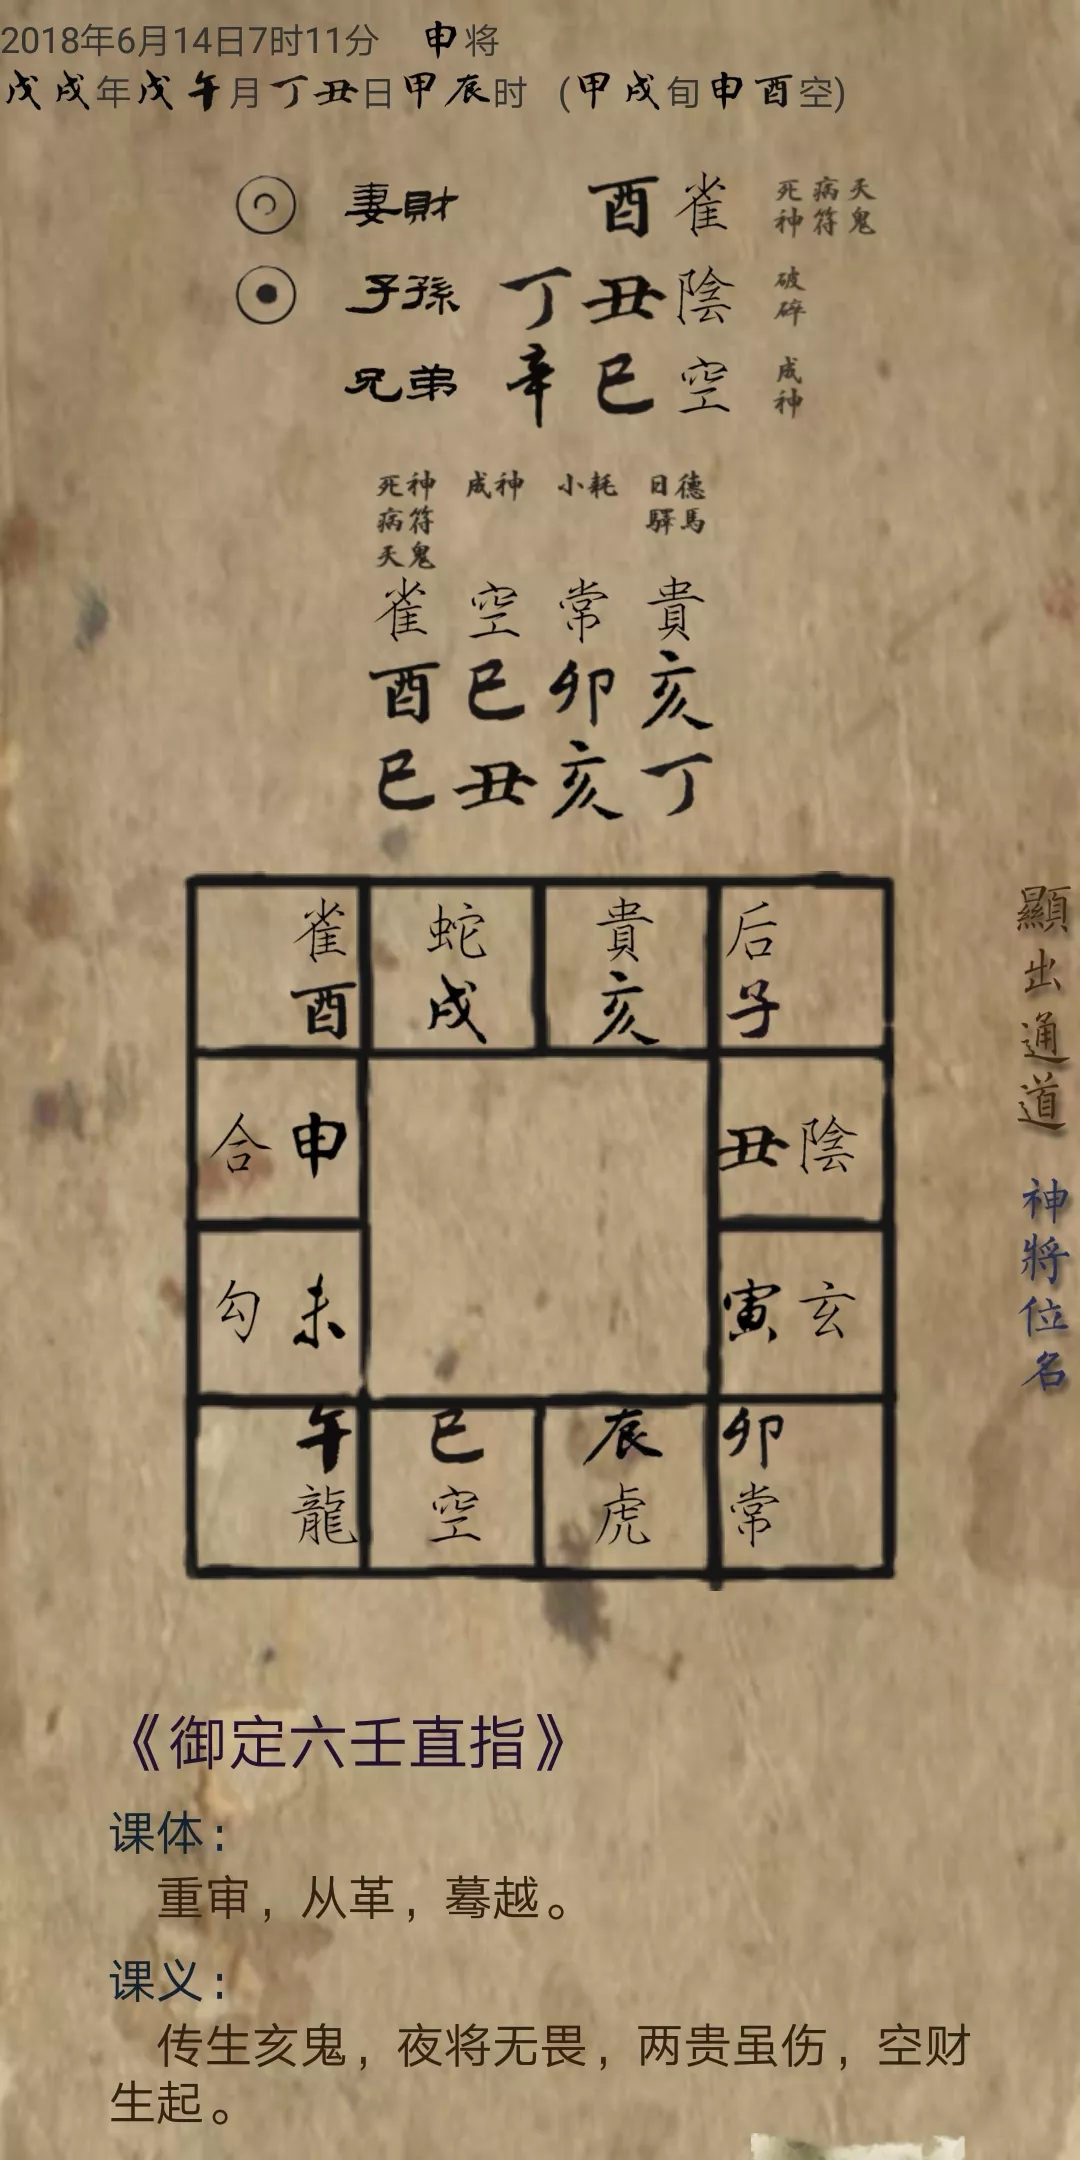 2018年6月14日7时11分 申将
戊戌年戊午月丁丑日甲辰时 (甲戌旬申酉空)
妻財 酉雀 死神 病符 天鬼
子孫 丁丑陰 破碎
兄弟 辛巳空 成神
死神 成神 小耗 日德
病符 驛馬
天鬼
雀空常貴
酉巳卯亥
巳丑亥丁
雀 蛇 貴 后
酉 戌 亥 子
合申 丑陰
勾未 寅玄
午 巳 辰 卯
龍 空 虎 常
顯出通道
神將位名
《御定六壬直指》
课体:
重审,从革,蓦越。
课义:
传生亥鬼,夜将无畏,两贵虽伤,空财
生起。